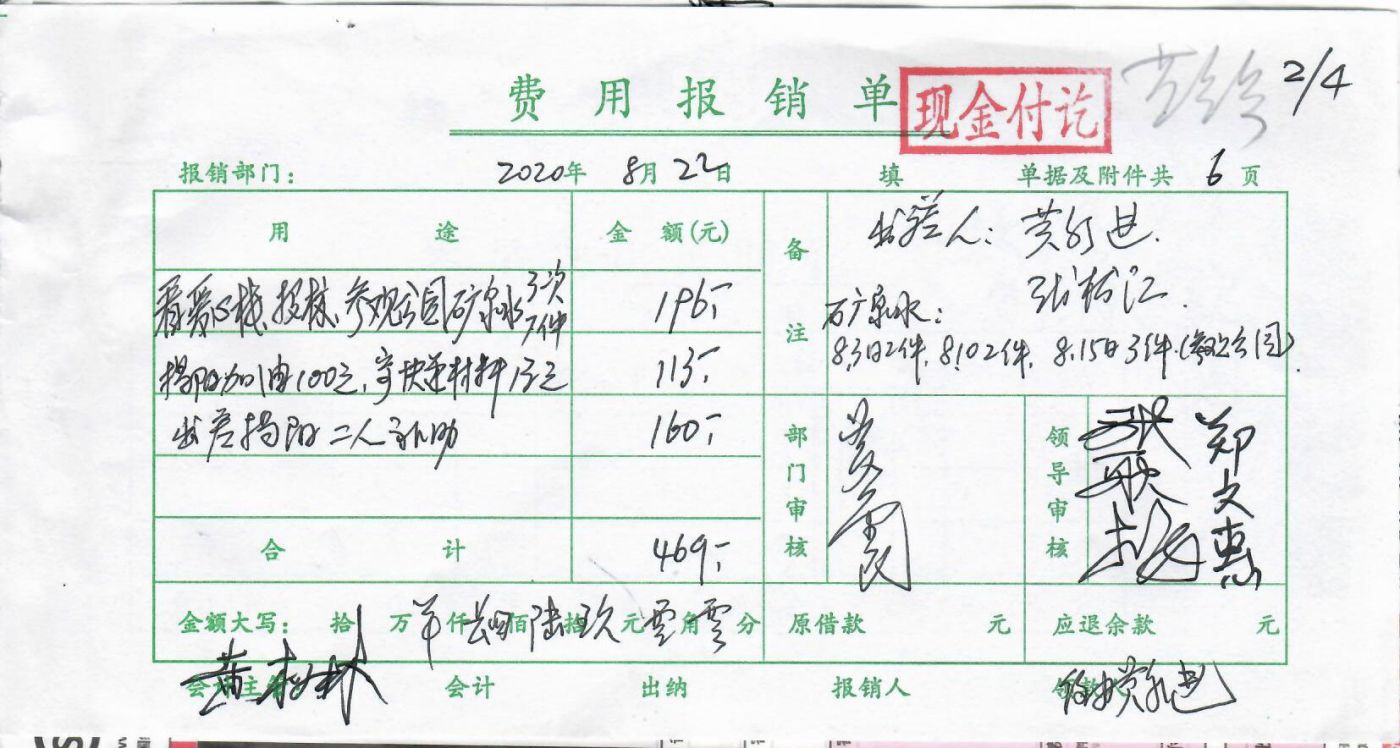 费用报销单
现金付讫
2/4
报销部门： 2020年 8月 22日 填 单据及附件共 6 页
用 途 金 额(元)
备注
出差人：黄
张松江
石矿泉水：
8.3日2件，8.10 2件，8.15日3件(参观公园)
看爱心 参观公园矿泉水3次7件 196.-
揭阳加油100元，寄快递材料13元 113.-
出差揭阳二人补助 160.-
部门审核
领导审核
郑文惠
合 计 469.-
金额大写： 拾 万 仟 肆佰陆拾玖元零角零分 原借款 元 应退余款 元
会计主管 会计 出纳 报销人 领款人